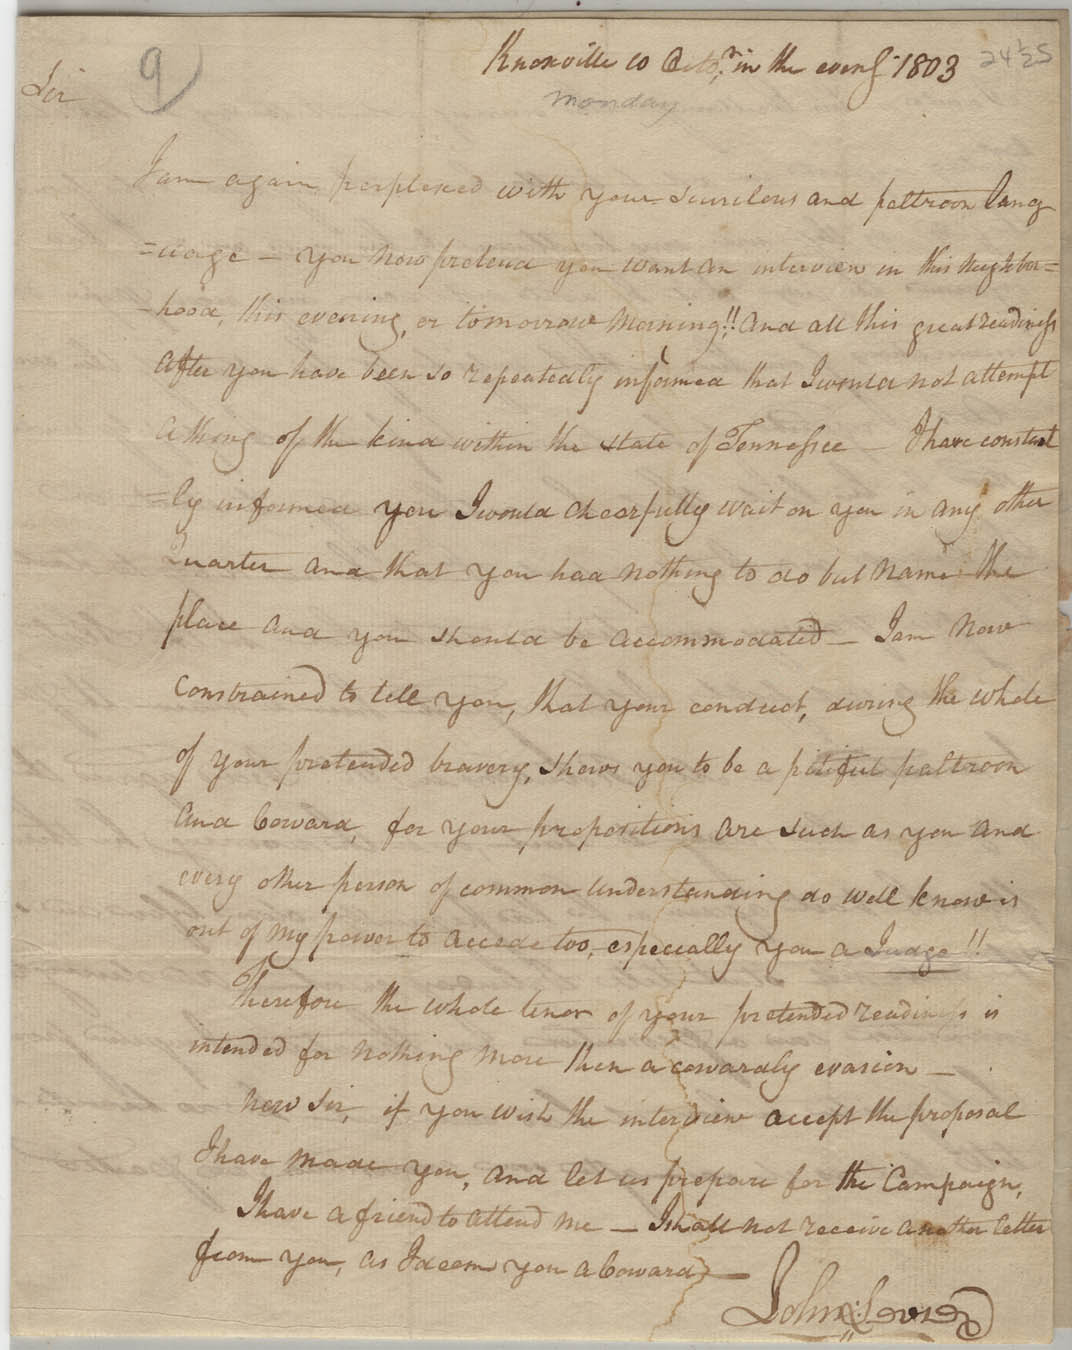 9
24 1/2 S
Knoxville 10 Octr. in the eveng. 1803
Sir
Monday
I am again perplexed with your scurilous and poltroon lang
=uage – you now pretend you want an interview in this neighbor=
-hood, this evening, or tomorrow morning!! and all this great readiness
after you have been so repeatedly informed that I would not attempt
a thing of the kind within the state of Tennessee – I have constant
=ly informed you I would chearfully wait on you in any other
Quarter and that you had nothing to do but name the
place and you should be accommodated – I am now
constrained to tell you, that your conduct, during the whole
of your pretended bravery, shows you to be a pitiful poltroon
and Coward, for your propositions are such as you and
every other person of common understanding do well know is
out of my power to accede too, especially you a Judge!!
Therefore the whole tenor of your pretended readiness is
intended for nothing more then a cowardly evasion –
Now sir, if you wish the interview accept the proposal
I have made you, and let us prepare for the Campaign,
I have a friend to attend me – I shall not receive another letter
from you, as I deem you a Coward –
John Sevier